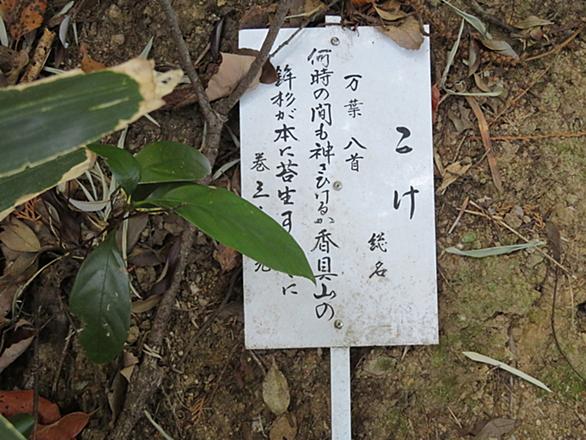 こけ
総名
万葉 八首
何時の間も神さびけるか香具山の
鉾杉が本に苔生す に
巻三